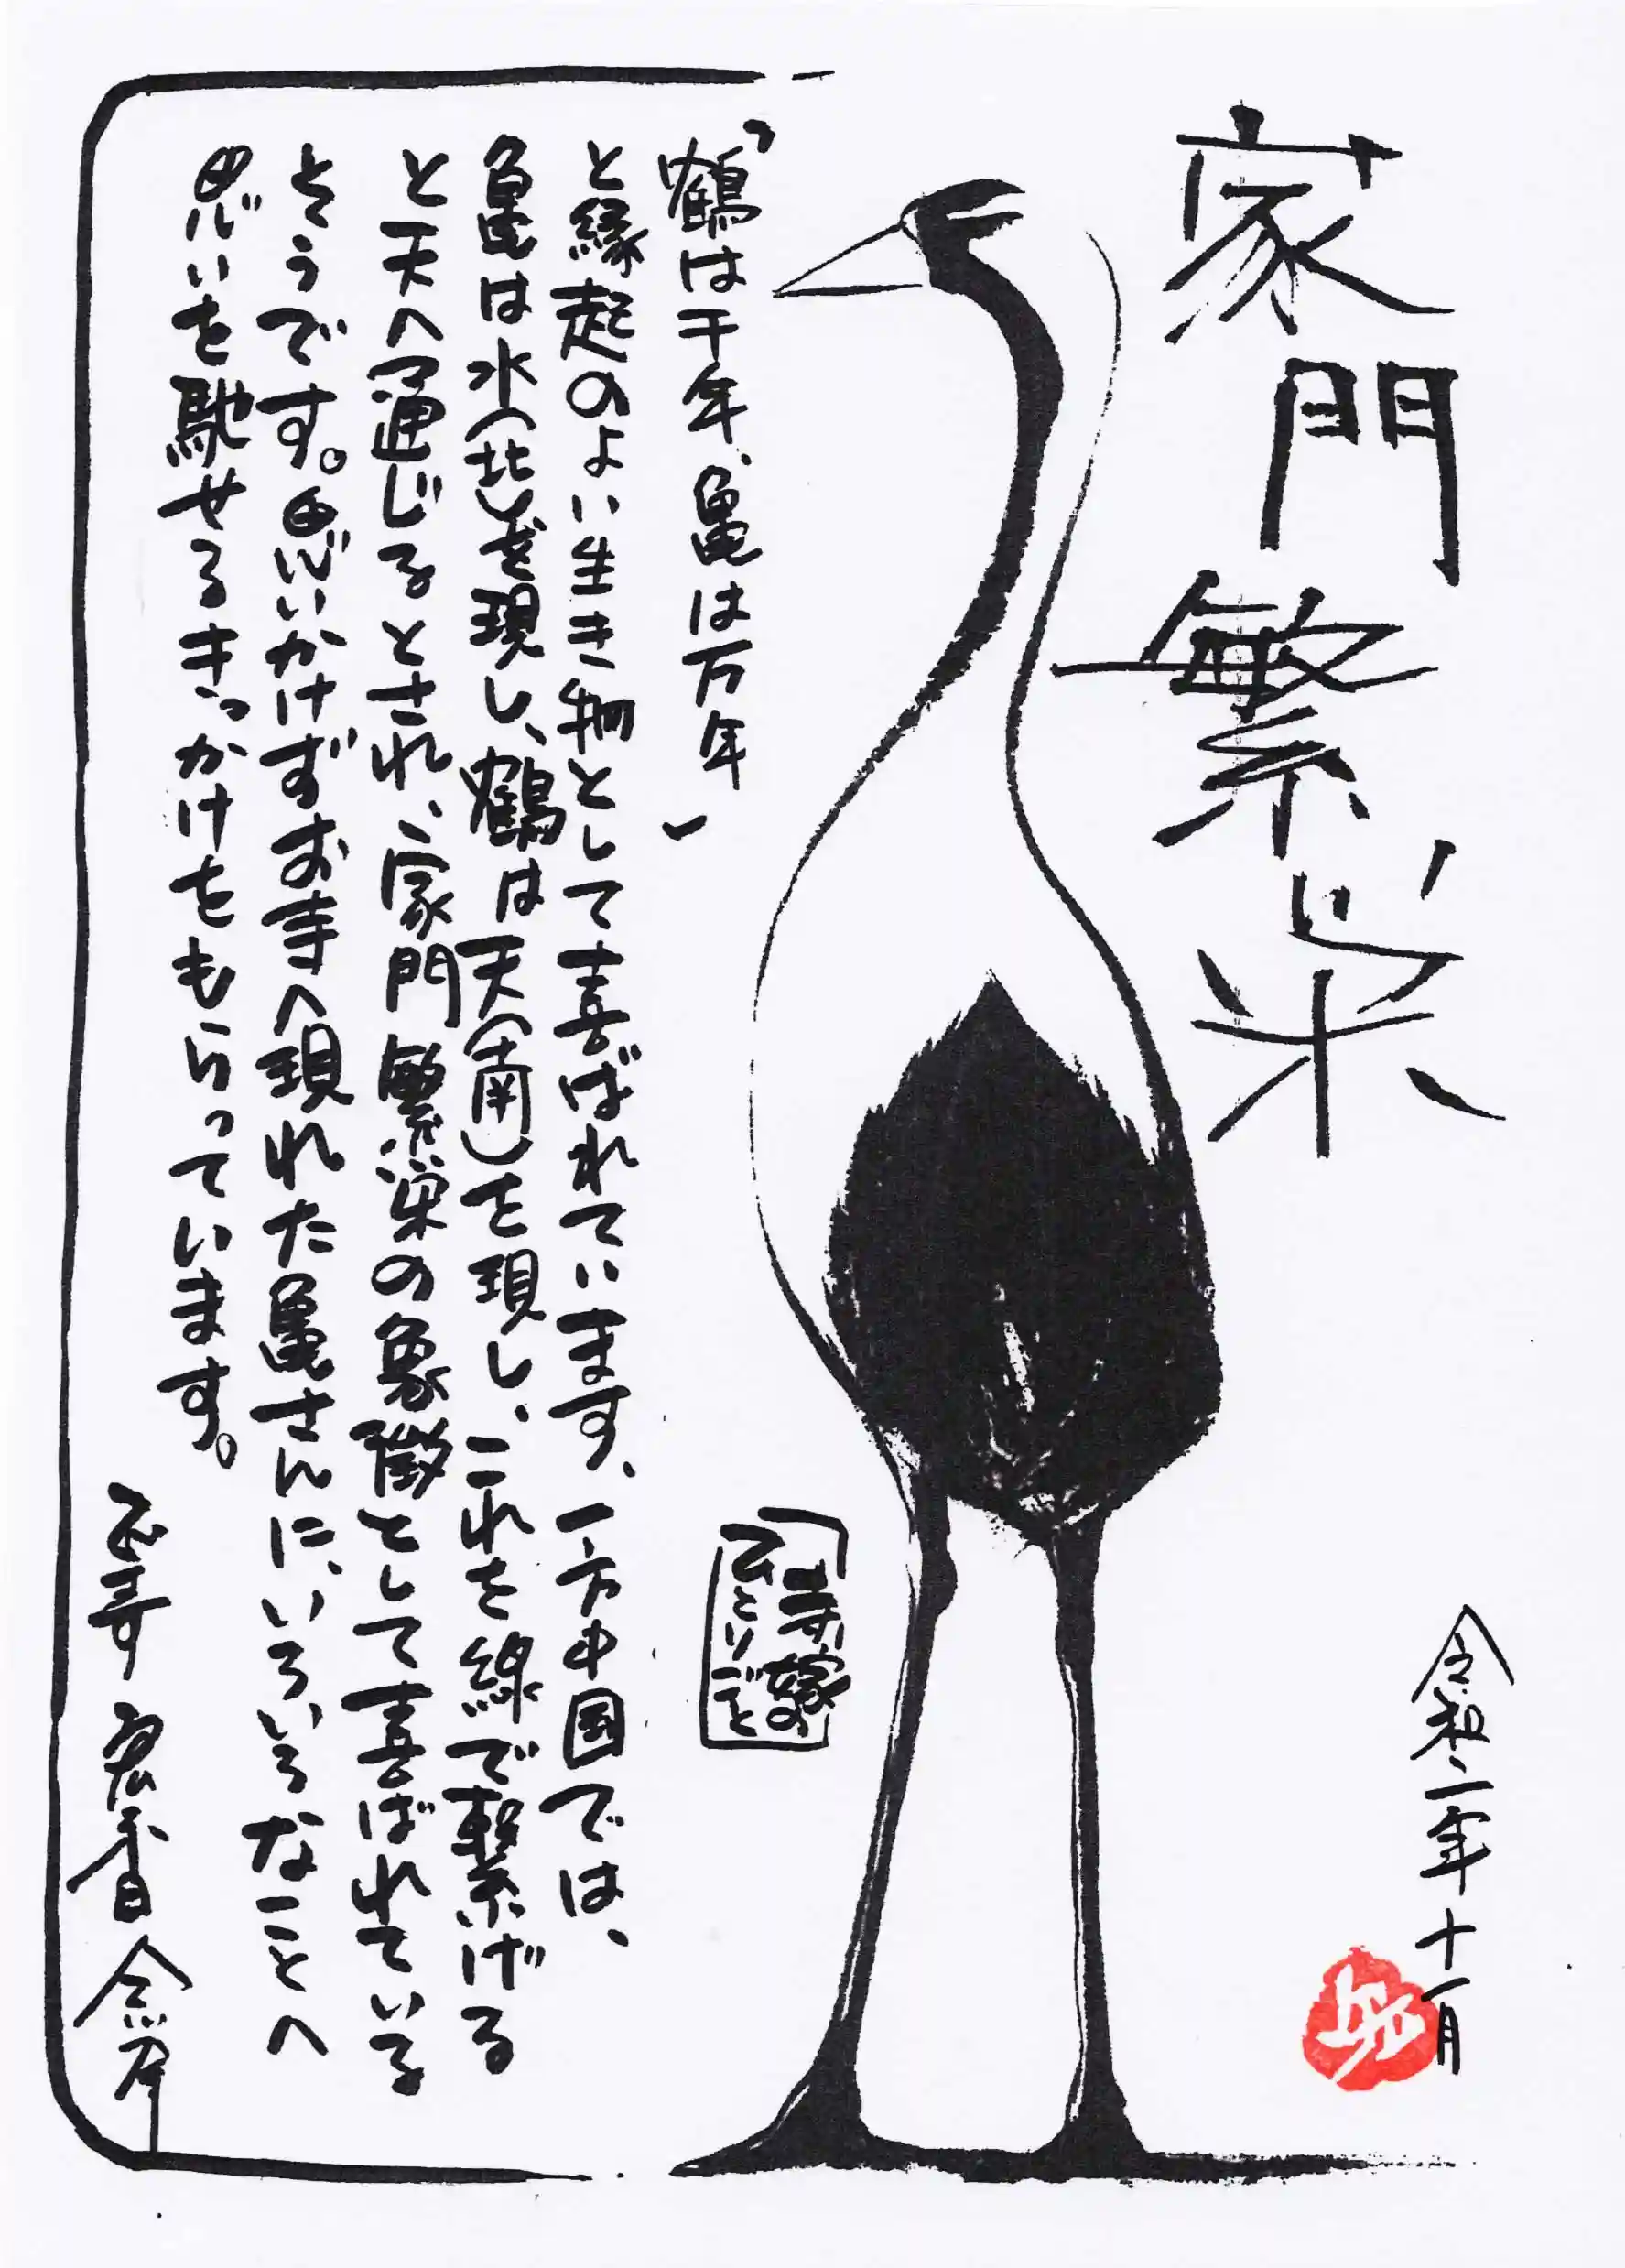 家門繁栄
令和二年十一月
「鶴は千年、亀は万年」
と縁起のよい生き物として喜ばれています、一方中国では、
亀は水(北)を現し、鶴は天(南)を現し、これを線で繋げる
と天へ通じるとされ、家門繁栄の象徴として喜ばれている
そうです。思いかけずお寺へ現れた亀さんに、いろいろなことへ
思いを馳せるきっかけをもらっています。
合掌
寺嫁の
ひとりごと